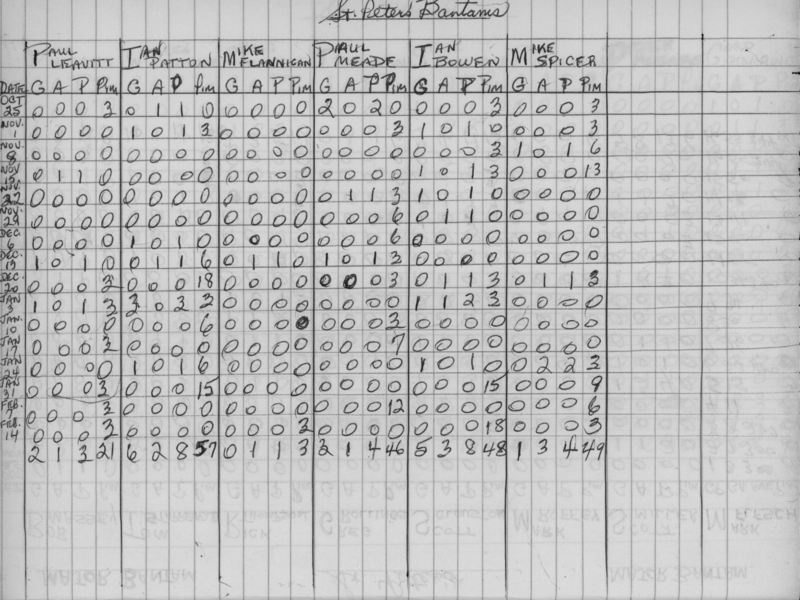 St. Peters Bantams
PAUL LEAVITT IAN PATTON MIKE FLANNIGAN PAUL MEADE IAN BOWEN MIKE SPICER
DATE G A P Pim G A P Pim G A P Pim G A P Pim G A P Pim G A P Pim
OCT 25 0 0 0 3 0 1 1 0 0 0 0 0 2 0 2 0 0 0 0 3 0 0 0 3
NOV. 1 0 0 0 0 1 0 1 3 0 0 0 0 0 0 0 3 1 0 1 0 0 0 0 3
NOV. 8 0 0 0 0 0 0 0 0 0 0 0 0 0 0 0 0 0 0 0 3 1 0 1 6
NOV 15 0 1 1 0 0 0 0 0 0 0 0 0 0 0 0 0 1 0 1 3 0 0 0 13
NOV. 22 0 0 0 0 0 0 0 0 0 0 0 0 0 1 1 3 1 0 1 0 0 0 0 0
NOV. 29 0 0 0 0 0 0 0 0 0 0 0 0 0 0 0 6 0 1 1 0 0 0 0 0
DEC. 6 0 0 0 0 1 0 1 0 0 0 0 0 0 0 0 6 0 0 0 0 0 0 0 0
DEC. 13 1 0 1 0 0 1 1 6 0 1 1 0 1 0 1 3 0 0 0 0 0 0 0 0
DEC. 20 0 0 0 3 0 0 0 18 0 0 0 0 0 0 0 3 0 1 1 3 0 1 1 3
JAN 3 1 0 1 3 3 0 3 3 0 0 0 0 0 0 0 0 1 1 2 3 0 0 0 0
JAN. 10 0 0 0 0 0 0 0 6 0 0 0 0 0 0 0 3 0 0 0 0 0 0 0 0
JAN 17 0 0 0 3 0 0 0 0 0 0 0 0 0 0 0 7 0 0 0 0 0 0 0 0
JAN 24 1 0 1 6 0 0 0 0 0 0 0 0 1 0 1 0 0 2 2 3
JAN 31 0 0 0 3 0 0 0 15 0 0 0 0 0 0 0 0 0 0 0 15 0 0 0 9
FEB. 7 0 0 0 3 0 0 0 0 0 0 0 0 0 0 0 12 0 0 0 0 0 0 0 6
FEB. 14 0 0 0 3 0 0 0 0 0 0 0 3 0 0 0 0 0 0 0 18 0 0 0 3
2 1 3 21 6 2 8 57 0 1 1 3 3 1 4 46 5 3 8 48 1 3 4 49